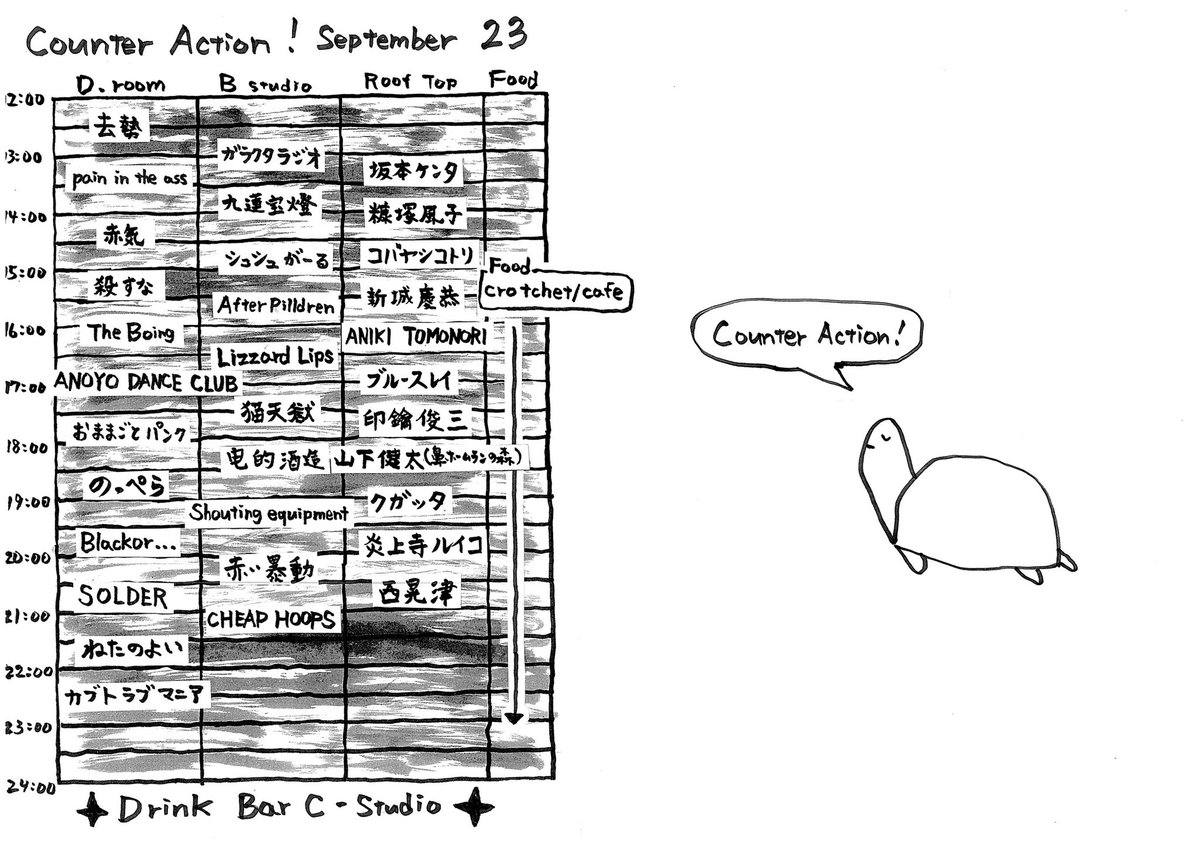 Counter Action! September 23
D.room B studio Roof Top Food
12:00
去勢
13:00
ガラクタラジオ
pain in the ass
坂本ケンタ
九蓮宝燈
14:00
糠塚風子
赤気
シュシュがーる
コバヤシコトリ
15:00
Food
crotchet/cafe
殺すな
AfterPilldren
新城慶恭
16:00
The Boing
ANIKI TOMONORI
Lizzard Lips
17:00
ANOYO DANCE CLUB
ブルースレイ
猫天獄
印鑰俊三
おままごとパンク
18:00
电的酒造
山下健太(鼻ホームランの森)
のっぺら
19:00
Shouting equipment
クガッタ
Blackor...
炎上寺ルイコ
20:00
赤い暴動
SOLDER
西晃津
21:00
CHEAP HOOPS
ねたのよい
22:00
カブトラブマニア
23:00
24:00
Drink Bar C-Studio
Counter Action!